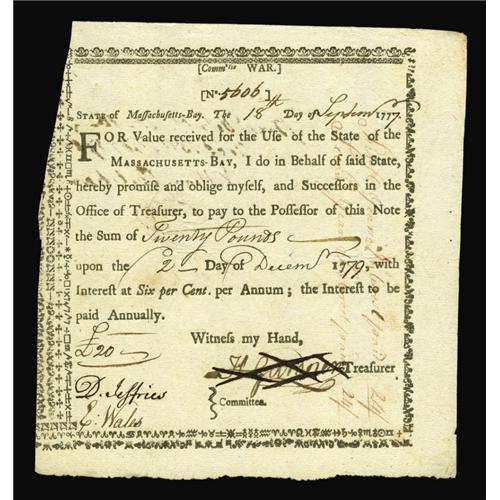 [Comm'tts WAR.]
[No. 5606]
STATE of Massachusetts-Bay. The 18th Day of Septemr 1777.
FOR Value received for the Use of the State of the
MASSACHUSETTS-BAY, I do in Behalf of said State,
hereby promise and oblige myself, and Successors in the
Office of Treasurer, to pay to the Possessor of this Note
the Sum of Twenty Pounds
upon the 2 Day of Decemr 1779, with
Interest at Six per Cent. per Annum; the Interest to be
paid Annually.
Witness my Hand,
£20
Treasurer
D. Jeffries
E. Wales
Committee.